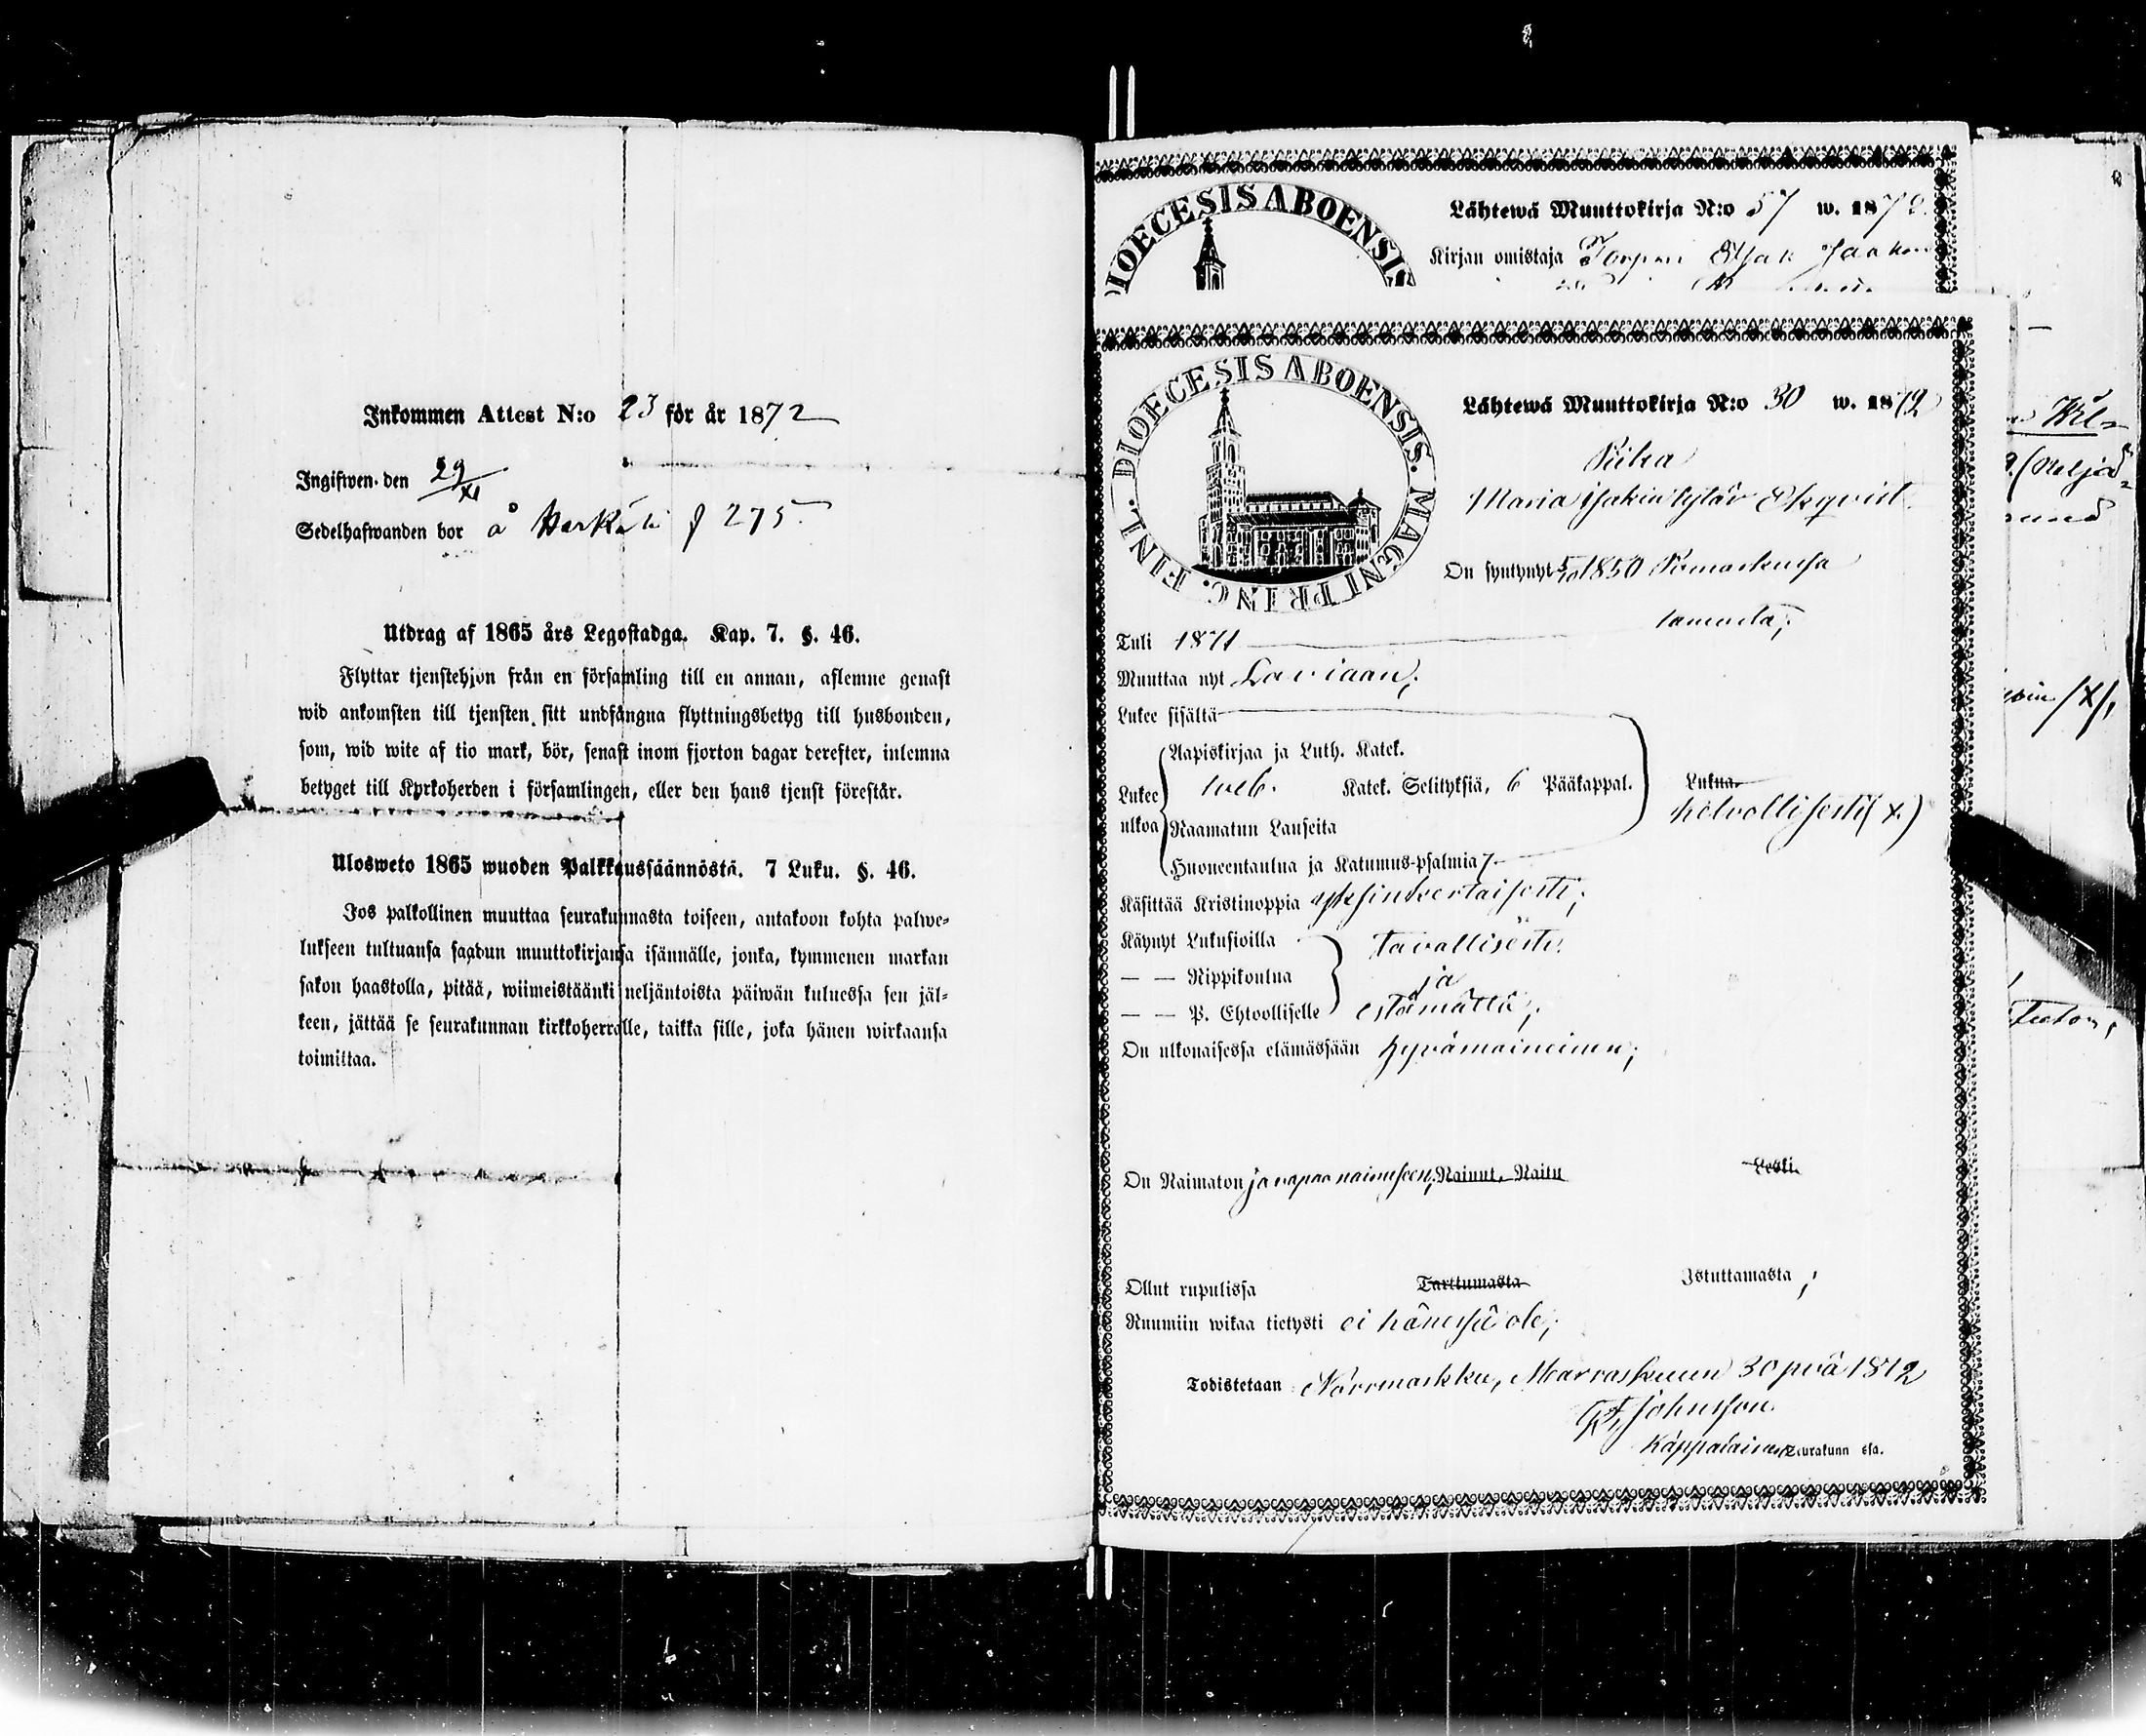 Inkommen Attest N:o 23 för år 1872
Ingifwen den 29/XI
Sedelhafwanden bor å Harkäla p 275.
Utdrag af 1865 års Legostadga. Kap. 7. §. 46.
Flyttar tjenstehjon från en församling till en annan, aflemne genast
wid ankomsten till tjensten sitt undfångna flyttningsbetyg till husbonden,
som, wid wite af tio mark, bör, senast inom fjorton dagar derefter, inlemna
betyget till Kyrkoherden i församlingen, eller den hans tjenst förestår.
Ulosweto 1865 wuoden Palkkaussäännöstä. 7 Luku. §. 46.
Jos palkollinen muuttaa seurakunnasta toiseen, antakoon kohta palwe-
lukseen tultuansa saadun muuttokirjansa isännälle, jonka, kymmenen markan
sakon haastolla, pitää, wiimeistäänki neljäntoista päiwän kuluessa sen jäl-
keen, jättää se seurakunnan kirkkoherralle, taikka sille, joka hänen wirkaansa
toimittaa.
DIOECESIS ABOENSIS
Lähtewä Muuttokirja N:o 57 w. 1872.
Kirjan omistaja
DIOECESIS ABOENSIS. MAGNI PRINC. FINL.
Lähtewä Muuttokirja N:o 30 w. 1872
Piika
Maria Isakin tytär Ekqvist
On syntynyt 5/10 1850 Pomarkussa
Tuli 1871 samasta;
Muuttaa nyt Laviaan;
Lukee sisältä
Lukee ulkoa
Aapiskirjaa ja Luth. Katek.
Katek. Selityksiä, 6 Pääkappal.
Raamatun Lauseita
Huoneentaulua ja Katumus-psalmia 7
Lukua
kelvollisesti (x.)
Käsittää Kristinoppia yksinkertaisesti;
Käynyt Lukusioilla tavallisesti
— — Rippikoulua ja
— — P. Ehtoolliselle estämättä;
On ulkonaisessa elämässään hyvämaineinen;
On Naimaton ja vapaa naimiseen; Nainut, Naitu Leski.
Ollut rupulissa Tarttumasta Istuttamasta;
Ruumiin wikaa tietysti ei hänessä ole;
Todistetaan Norrmarkku, Marraskuun 30 pvä 1872
Johnsson
Kappalainen Seurakunn ssa.